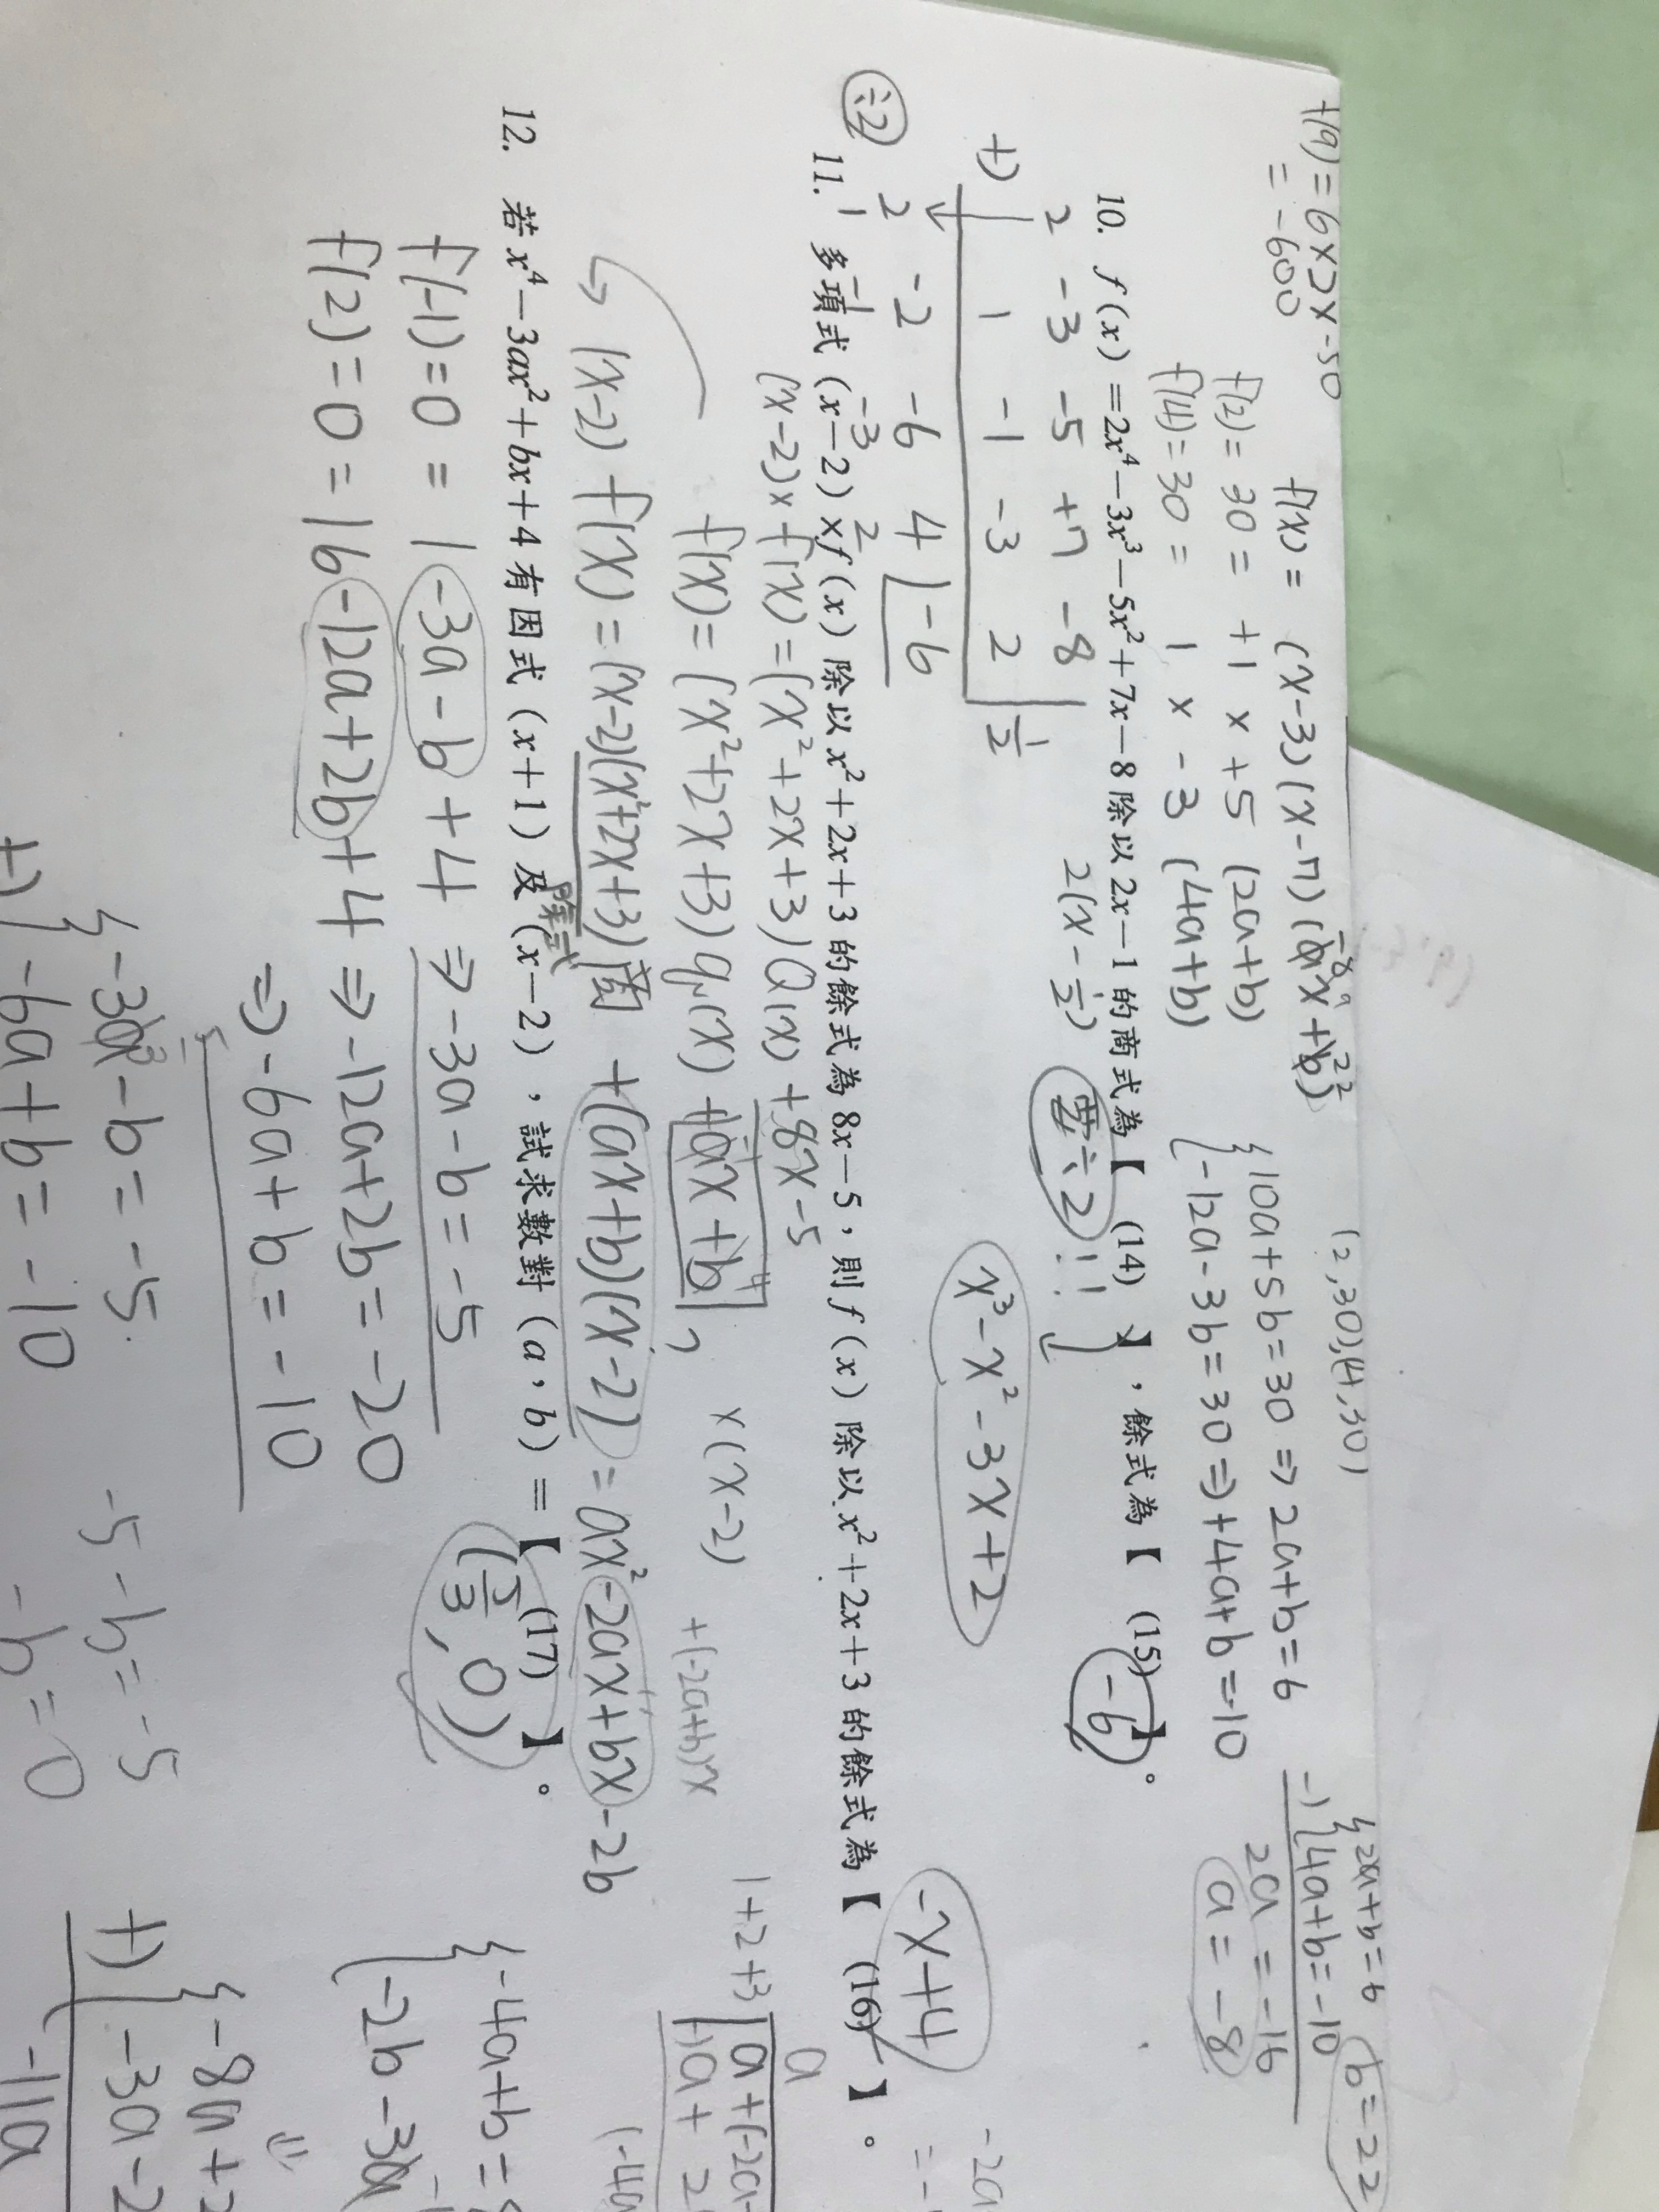 f(9)=6×2×-50
=-600
f(x)= (x-3)(x-7)(ax+b)
-8 22
f(2)=30= +1×+5(2a+b)
f(4)=30= 1×-3(4a+b)
(2,30),(4,30)
10a+5b=30⇒2a+b=6
-12a-3b=30⇒+4a+b=-10
2a+b=6
-) 4a+b=-10
2a=-16
a=-8
b=22
10. f(x)=2x⁴-3x³-5x²+7x-8除以2x-1的商式為【 (14) 】,餘式為【 (15) 】。
-6
2(x-½)
要÷2!!
2 -3 -5 +7 -8 | ½
+) 1 -1 -3 2
2 -2 -6 4 | -6
÷2 1 -1 -3 2
x³-x²-3x+2
11. 多項式(x-2)×f(x)除以x²+2x+3的餘式為8x-5,則f(x)除以x²+2x+3的餘式為【 (16) 】。
-x+4
(x-2)×f(x)=(x²+2x+3)Q(x)+8x-5
f(x)=(x²+2x+3)q(x)+ax+b, ×(x-2)
-1 4
+(-2a+b)x
(x-2)f(x)=(x-2)(x²+2x+3)商+(ax+b)(x-2)=ax²-2ax+bx-2b
除式
1+2+3
a
-4a+b=
-2b-3a
12. 若x⁴-3ax²+bx+4有因式(x+1)及(x-2),試求數對(a,b)=【 (17) 】。
(5/3,0)
f(-1)=0=1-3a-b+4⇒-3a-b=-5
f(2)=0=16-12a+2b+4⇒-12a+2b=-20
⇒-6a+b=-10
-3a-b=-5
+) -6a+b=-10
-5-b=-5
-b=0
-8a+2
+) -3a-2
-11a